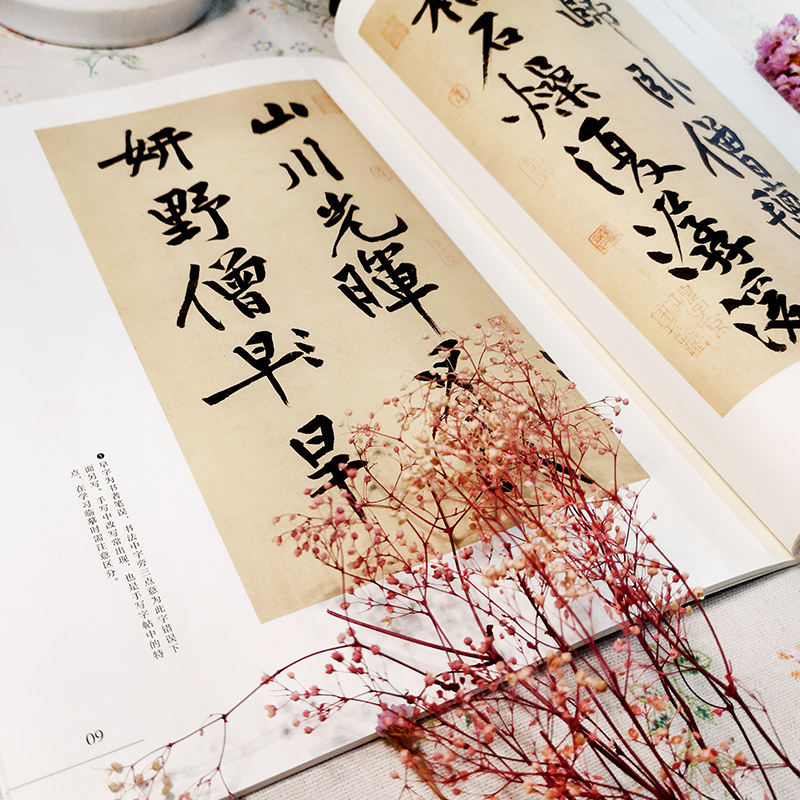 歸臥僧氈
石燥復潺湲
山川光暉
妍野僧早旱
早字为书者笔误，书法中字旁三点意为此字错误下
面另写。手写中改写常出现，也是手写字帖中的特
点，在学习临摹时需注意区分。
09